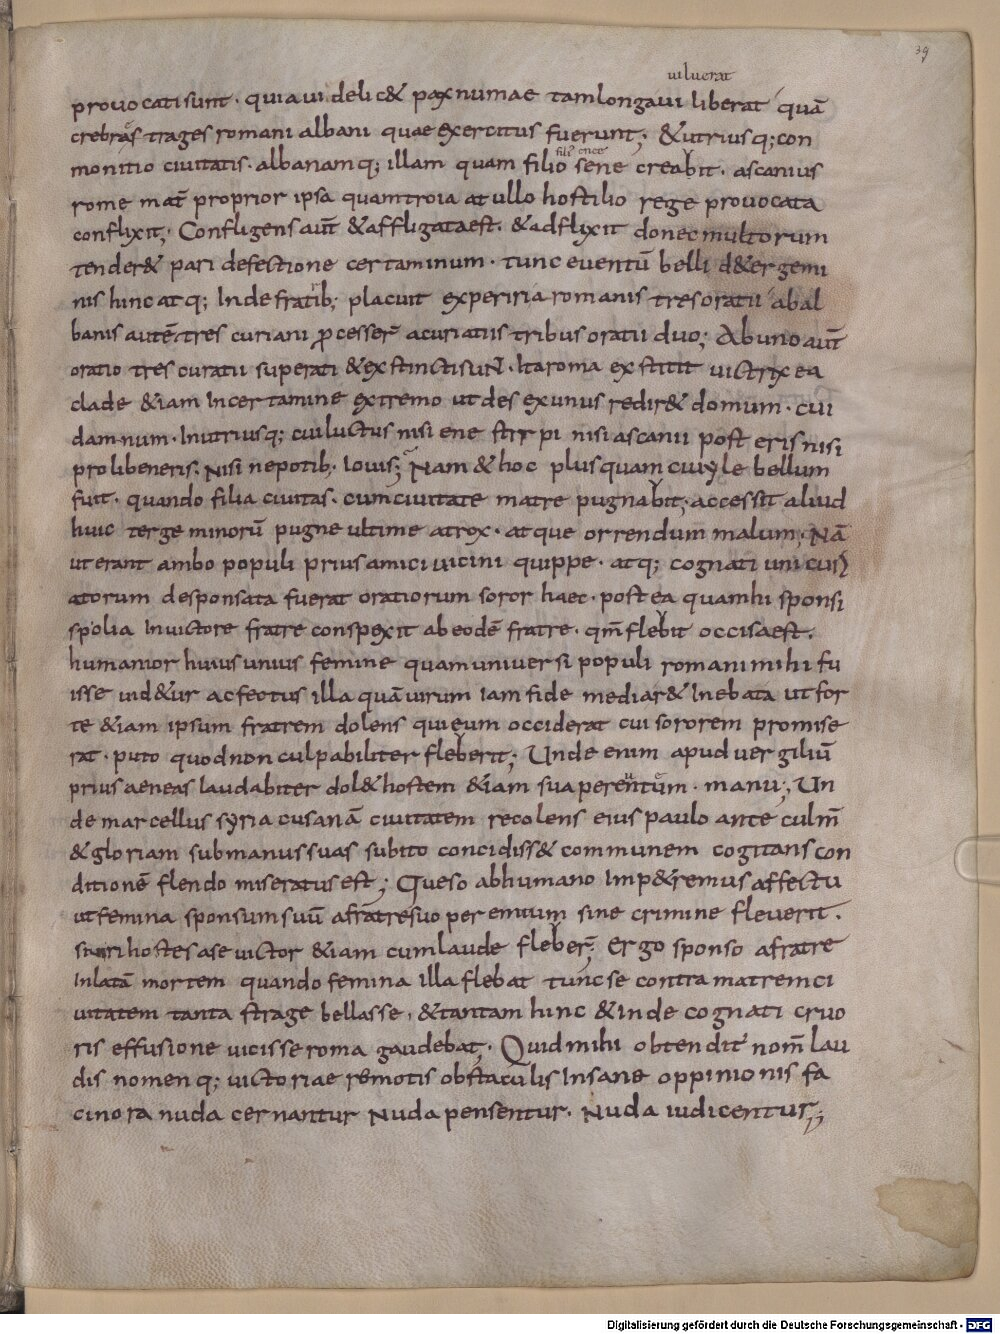 39
uiluerat
prouocati sunt · quia uidelic& pax numae tam longa uiliberat quā
crebras strages romani albani quae exercitus fuerunt; &utriusq; con
monitio ciuitatis · albanamq; illam quam filio sene creabit · ascanius
rome mat̄ proprior ipsa quam troia at ullo hostilio rege prouocata
conflixit; Confligens aut̄ & affligata est · & adflixit donec multorum
tender& pari defectione certaminum · tunc euentū belli d& ergemi
nis hinc atq; Inde fratib; placuit experiri a romanis tres oratii abal
banis autē tres curiani ꝓcesser̄ a curiatiis tribus oratii duo; Ab uno aut̄
oratio tres curatii superati & exstincti suɴ̄ · Ita roma exstitit uictrix ea
clade & iam Incertamine extremo ut des ex unus redir& domum · cui
damnum · Inutriusq; cui luctus nisi ene stirpi nisi ascanii posteris nisi
prolibeneris; Nisi nepotib; Iouis; Nam & hoc plus quam ciuyle bellum
fuit · quando filia ciuitas · cum ciuitate matre pugnabit; accessit aliud
huic terge minorū pugne ultime atrox · atque orrendum malum · Nā
ut erant ambo populi prius amici uicini quippe · atq; cognati uni curi
atorum desponsata fuerat oratiorum soror haec · postea quam hi sponsi
spolia Inuictore fratre conspexit ab eodē fratre · qm̄ flebit occisa est ·
humanior huius unius femine quam uniuersi populi romani mihi fu
isse uid&ur acfeotus illa quā uirum iam fide mediar& Inebata ut for
te &iam ipsum fratrem dolens qui eum occiderat cui sororem promise
rat · puto quod non culpabiliter fleberit; Unde enim apud uergiliū
prius aeneas laudabiter dol& hostem &iam sua perentum · manu; Un
de marcellus syria cusanā ciuitatem recolens eius paulo ante culm̄
& gloriam sub manus suas subito concidiss& communem cogitans con
ditionē flendo miseratus est; Queso ab humano Imp&remus affectu
ut femina sponsum suū afratre suo peremtum sine crimine fleuerit ·
si uiri hostes ase uictor &iam cum laude fleber̄; Ergo sponso afratre
Inlatā mortem quando femina illa flebat tunc se contra matrem ci
uitatem tanta strage bellasse, & tantam hinc & inde cognati cruo
ris effusione uicisse roma gaudebat; Quid mihi obtendit nom̄ lau
dis nomenq; uictoriae remotis obstaculis Insane oppinionis fa
cinora nuda cernantur Nuda pensentur · Nuda iudicentur;
Digitalisierung gefördert durch die Deutsche Forschungsgemeinschaft · DFG